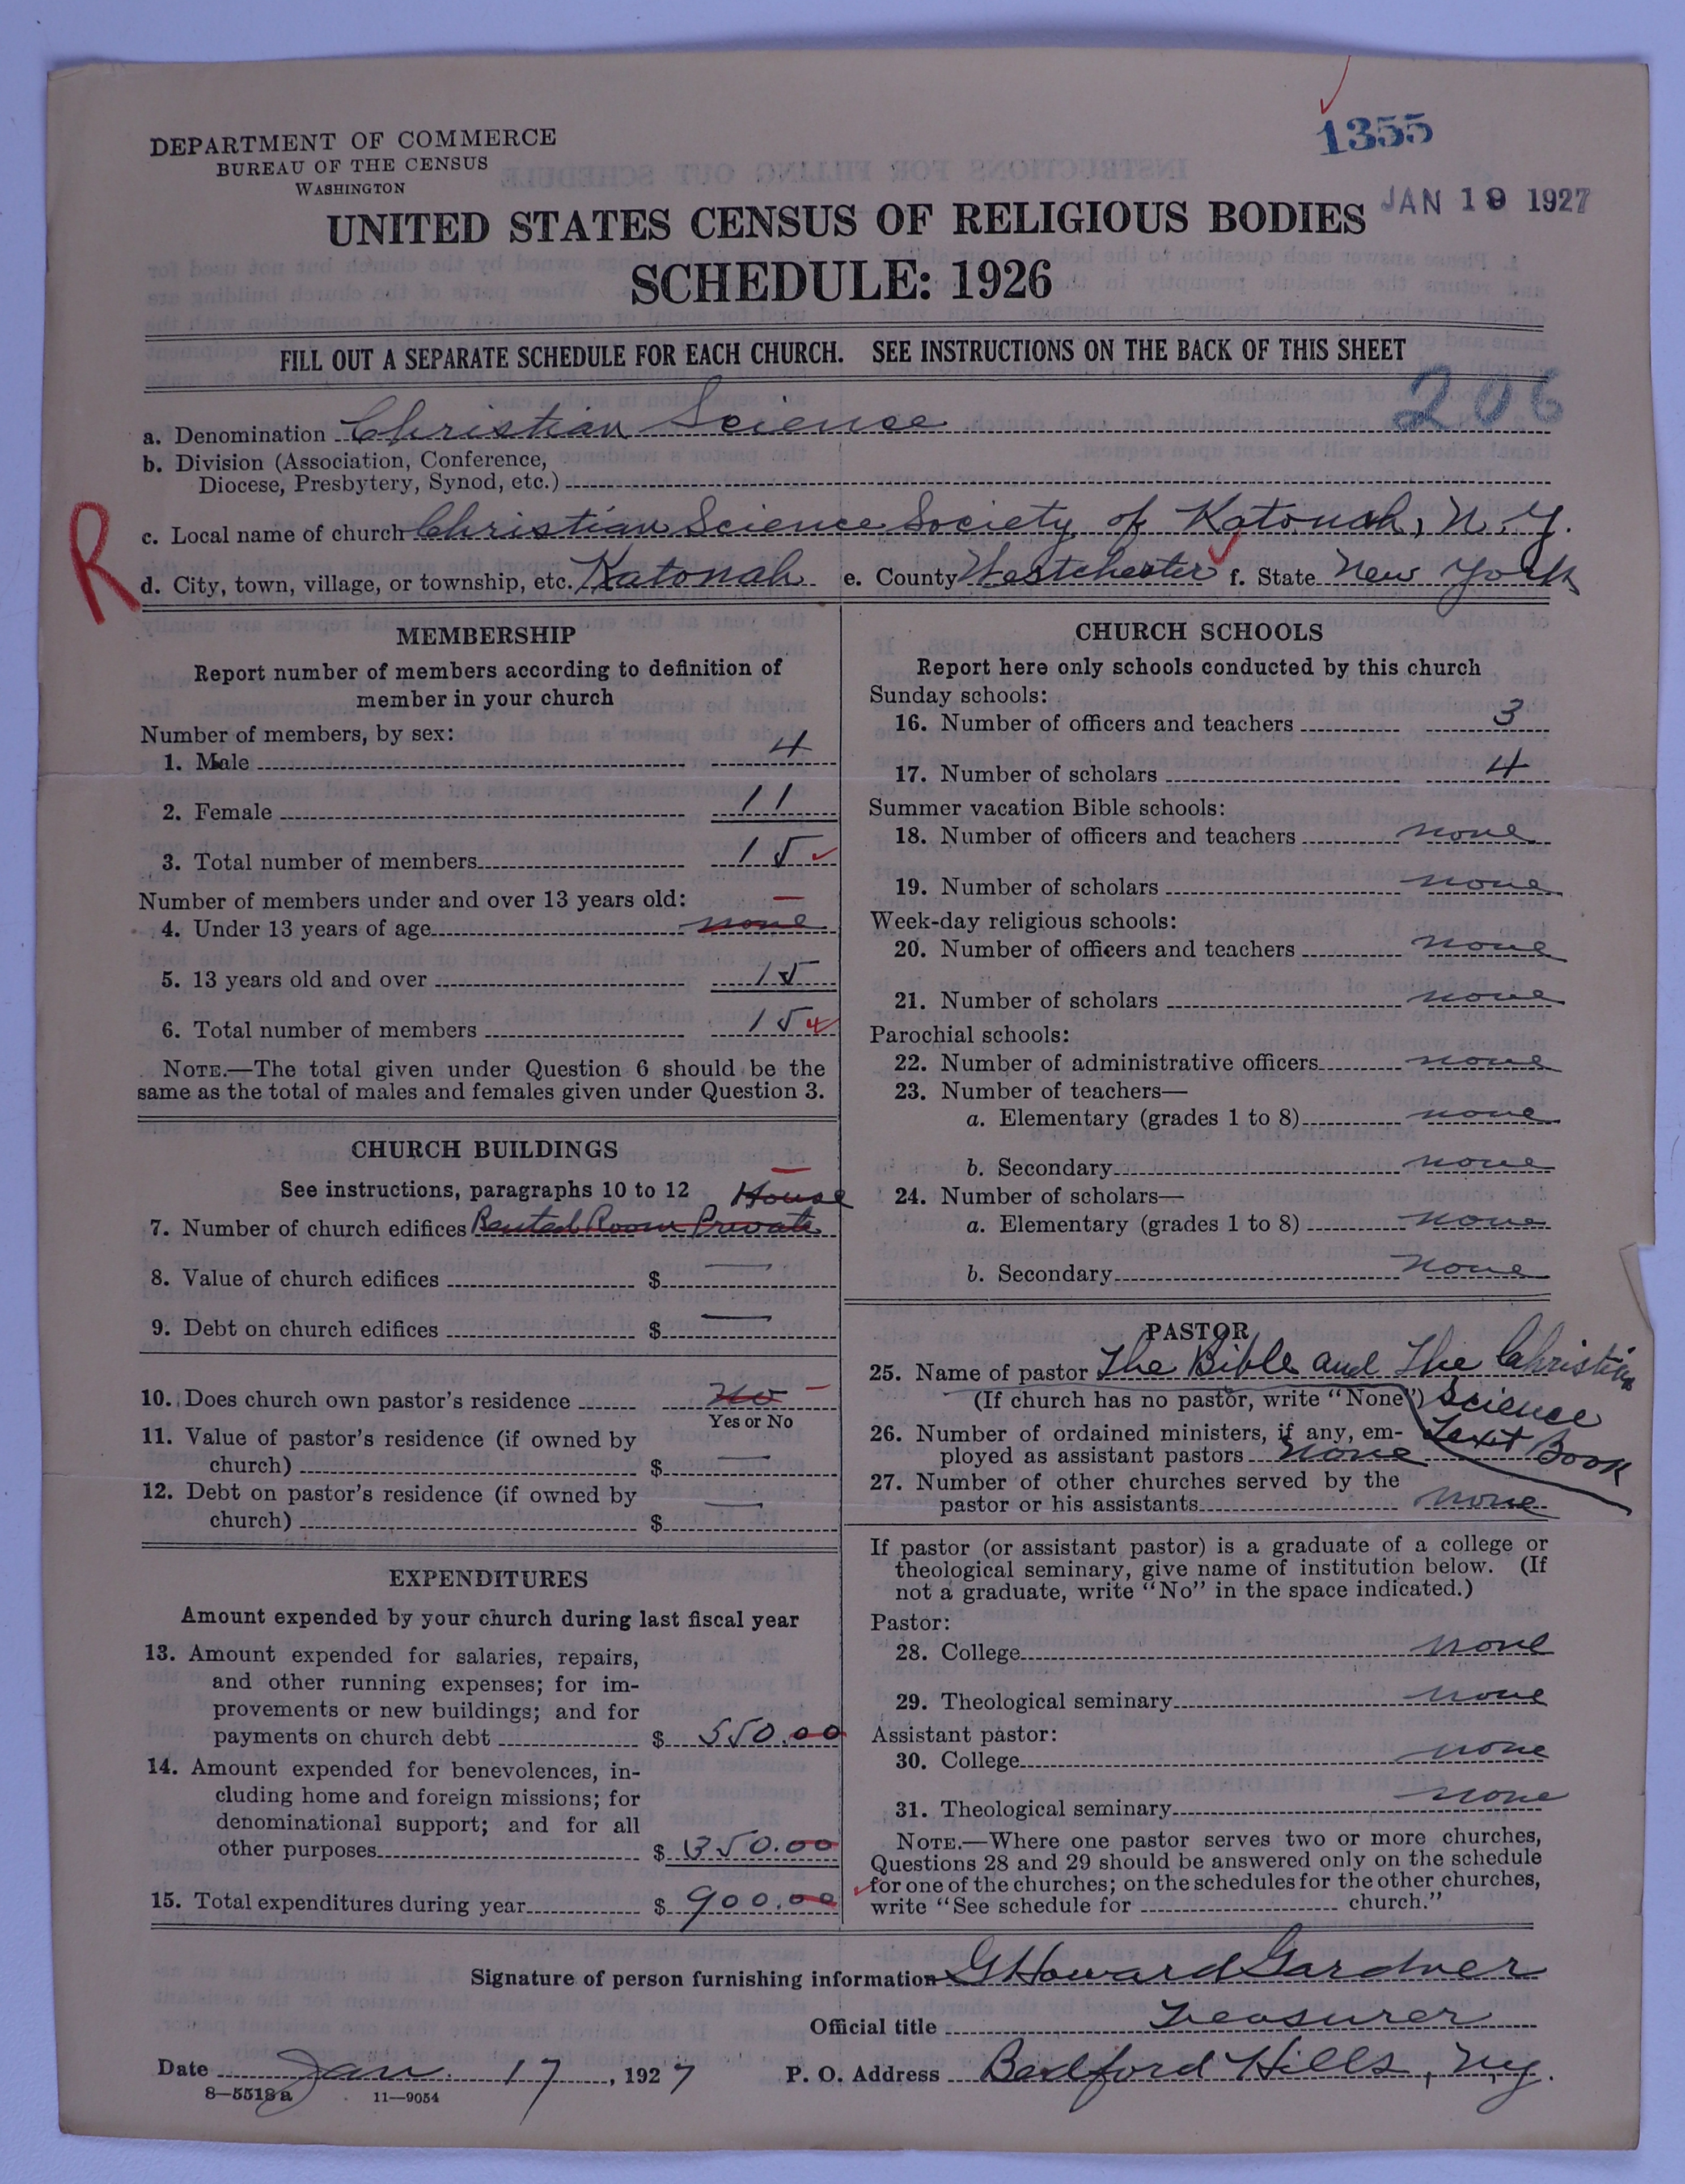 1355
DEPARTMENT OF COMMERCE
BUREAU OF THE CENSUS
WASHINGTON
JAN 19 1927
UNITED STATES CENSUS OF RELIGIOUS BODIES
SCHEDULE: 1926
FILL OUT A SEPARATE SCHEDULE FOR EACH CHURCH. SEE INSTRUCTIONS ON THE BACK OF THIS SHEET
206
a. Denomination Christian Science
b. Division (Association, Conference,
Diocese, Presbytery, Synod, etc.)
R
c. Local name of church Christian Science Society of Katonah, N.Y.
d. City, town, village, or township, etc. Katonah e. County Westchester f. State New York
MEMBERSHIP
Report number of members according to definition of
member in your church
Number of members, by sex:
1. Male 4
2. Female 11
3. Total number of members 15
Number of members under and over 13 years old:
4. Under 13 years of age none
5. 13 years old and over 15
6. Total number of members 15
NOTE.—The total given under Question 6 should be the
same as the total of males and females given under Question 3.
CHURCH BUILDINGS
See instructions, paragraphs 10 to 12 House
7. Number of church edifices Rented Room Private
8. Value of church edifices $ —
9. Debt on church edifices $ —
10. Does church own pastor's residence No
Yes or No
11. Value of pastor's residence (if owned by
church) $ —
12. Debt on pastor's residence (if owned by
church) $ —
EXPENDITURES
Amount expended by your church during last fiscal year
13. Amount expended for salaries, repairs,
and other running expenses; for im-
provements or new buildings; and for
payments on church debt $ 550.00
14. Amount expended for benevolences, in-
cluding home and foreign missions; for
denominational support; and for all
other purposes $ 350.00
15. Total expenditures during year $ 900.00
CHURCH SCHOOLS
Report here only schools conducted by this church
Sunday schools:
16. Number of officers and teachers 3
17. Number of scholars 4
Summer vacation Bible schools:
18. Number of officers and teachers none
19. Number of scholars none
Week-day religious schools:
20. Number of officers and teachers none
21. Number of scholars none
Parochial schools:
22. Number of administrative officers none
23. Number of teachers—
a. Elementary (grades 1 to 8) none
b. Secondary none
24. Number of scholars—
a. Elementary (grades 1 to 8) none
b. Secondary none
PASTOR
25. Name of pastor The Bible and The Christian
(If church has no pastor, write "None") Science
Text Book
26. Number of ordained ministers, if any, em-
ployed as assistant pastors none
27. Number of other churches served by the
pastor or his assistants none
If pastor (or assistant pastor) is a graduate of a college or
theological seminary, give name of institution below. (If
not a graduate, write "No" in the space indicated.)
Pastor:
28. College none
29. Theological seminary none
Assistant pastor:
30. College none
31. Theological seminary none
NOTE.—Where one pastor serves two or more churches,
Questions 28 and 29 should be answered only on the schedule
for one of the churches; on the schedules for the other churches,
write "See schedule for church."
Signature of person furnishing information G Howard Gardner
Official title Treasurer
Date Jan. 17, 1927 P. O. Address Bedford Hills, N.Y.
8—5518a 11—9054